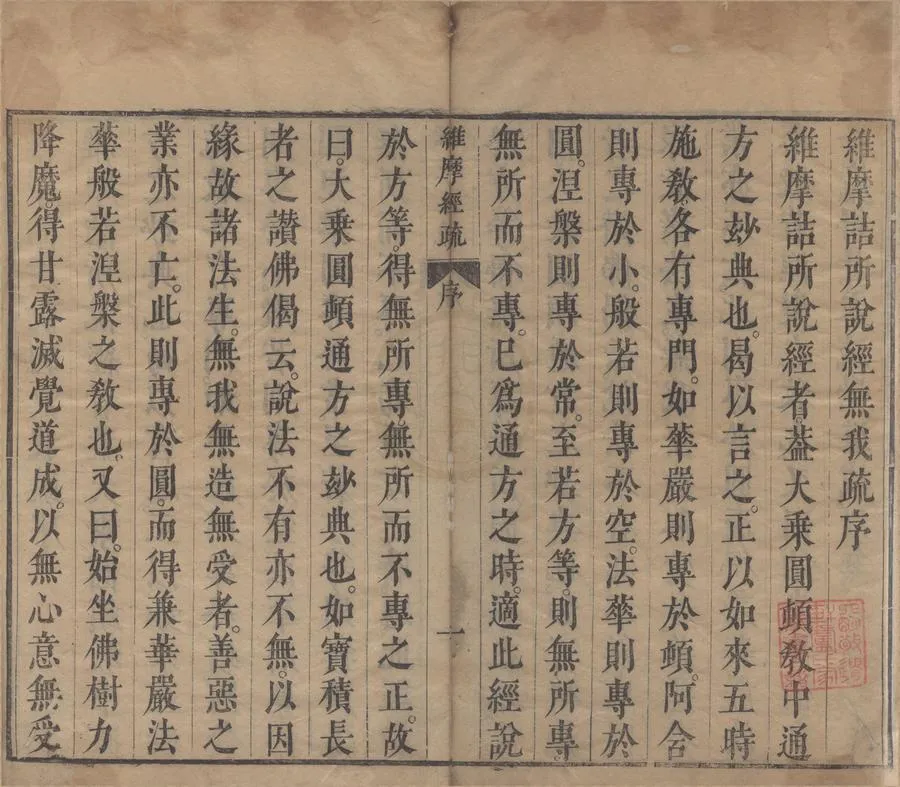 維摩詰所說經無我疏序
維摩詰所說經者。葢大乘圓頓敎中通
方之玅典也。曷以言之。正以如來五時
施敎。各有專門。如華嚴則專於頓。阿含
則專於小。般若則專於空。法華則專於
圓。涅槃則專於常。至若方等。則無所專。
無所而不專。已爲通方之時。適此經說
維摩經疏 序 一
於方等。得無所專。無所而不專之正。故
曰。大乘圓頓通方之玅典也。如寶積長
者之讚佛偈云。說法不有亦不無。以因
緣故諸法生。無我無造無受者。善惡之
業亦不亡。此則專於圓。而得兼華嚴法
華般若涅槃之敎也。又曰。始坐佛樹力
降魔。得甘露滅覺道成。以無心意無受